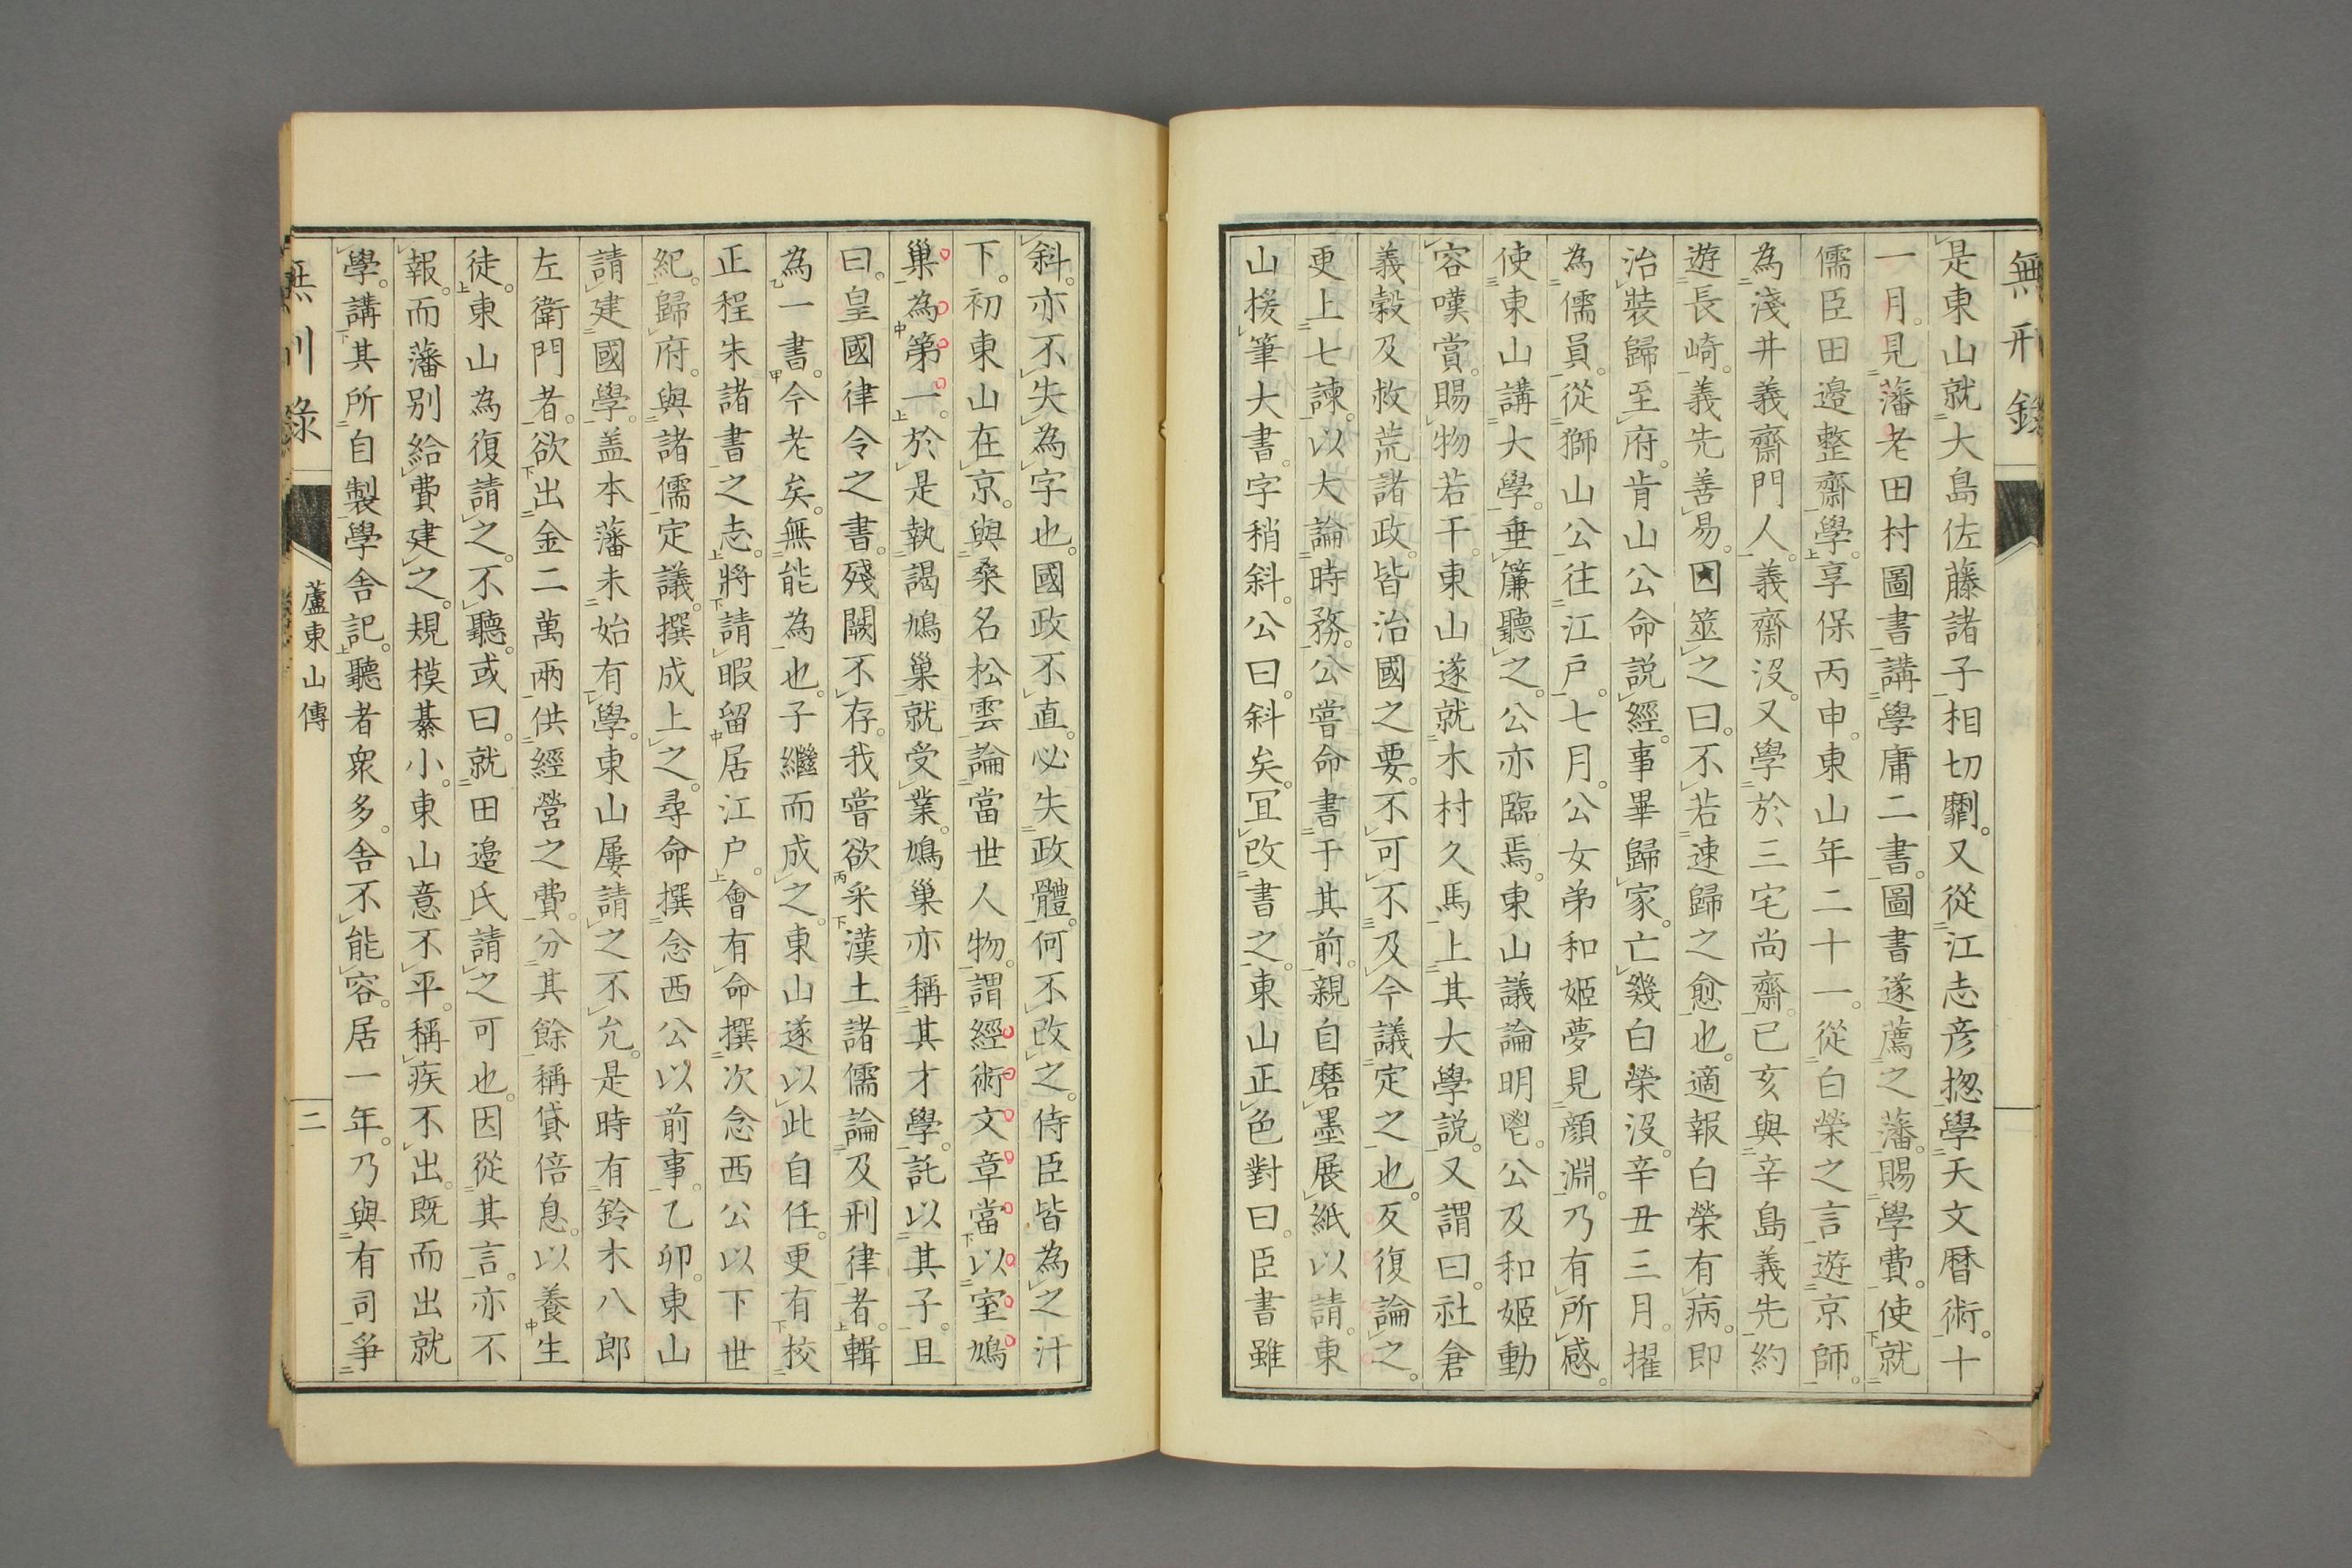 無刑錄
是東山就大島佐藤諸子相切劘。又從江志彦揔學天文曆術。十
一月。見藩老田村圖書講學庸二書。圖書遂薦之藩。賜學費。使就
儒臣田邉整齋學。享保丙申。東山年二十一。從白榮之言遊京師。
為淺井義齋門人。義齋沒。又學於三宅尚齋。已亥與辛島義先約
遊長崎。義先善易。因筮之曰。不若速歸之愈也。適報白榮有病。即
治裝歸至府。肯山公命説經。事畢歸家。亡幾白榮沒。辛丑三月。擢
為儒員。從獅山公往江戸。七月。公女弟和姬夢見顔淵。乃有所感。
使東山講大學。垂簾聽之。公亦臨焉。東山議論明鬯。公及和姬動
容嘆賞。賜物若干。東山遂就木村久馬上其大學説。又謂曰。社倉
義穀及救荒諸政。皆治國之要。不可不及今議定之也。反復論之。
更上七諫。以大論時務。公嘗命書于其前。親自磨墨展紙以請。東
山援筆大書。字稍斜。公曰。斜矣。冝改書之。東山正色對曰。臣書雖
斜。亦不失為字也。國政不直。必失政體。何不改之。侍臣皆為之汗
下。初東山在京。與桑名松雲論當世人物。謂經術文章當以室鳩
巢為第一。於是執謁鳩巢就受業。鳩巢亦稱其才學。託以其子。且
曰。皇國律令之書。殘闕不存。我嘗欲采漢土諸儒論及刑律者。輯
為一書。今老矣。無能為也。子繼而成之。東山遂以此自任。更有校
正程朱諸書之志。將請暇留居江户。會有命撰次念西公以下世
紀。歸府。與諸儒定議。撰成上之。尋命撰念西公以前事。乙卯。東山
請建國學。盖本藩未始有學。東山屢請之不允。是時有鈴木八郎
左衛門者。欲出金二萬兩供經營之費。分其餘稱貸倍息。以養生
徒。東山為復請之。不聽。或曰。就田邉氏請之可也。因從其言。亦不
報。而藩別給費建之。規模綦小。東山意不平。稱疾不出。既而出就
學。講其所自製學舍記。聽者衆多。舎不能容。居一年。乃與有司爭
無刑錄
蘆東山傳
二